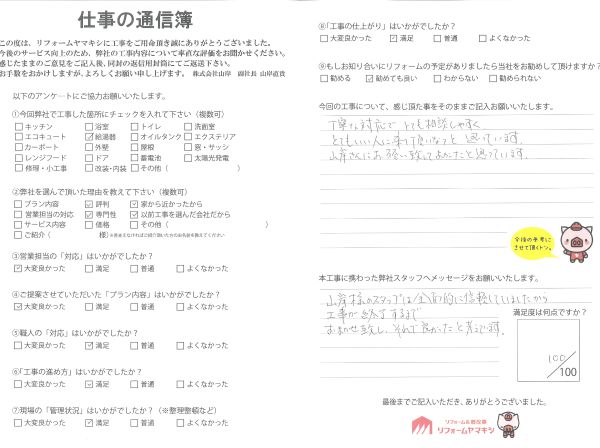 仕事の通信簿
この度は、リフォームヤマキシに工事をご用命頂き誠にありがとうございました。
今後のサービス向上のため、弊社の工事内容について率直な評価をお聞かせください。
感じたままのご意見をご記入後、同封の返信用封筒にてご返送下さい。
お手数をおかけしますが、よろしくお願い申し上げます。 株式会社山岸 副社長 山岸直貴
以下のアンケートにご協力お願いいたします。
①今回弊社で工事した箇所にチェックを入れて下さい（複数可）
キッチン 浴室 トイレ 洗面室
エコキュート 給湯器 オイルタンク エクステリア
カーポート 外壁 屋根 窓・サッシ
レンジフード ドア 蓄電池 太陽光発電
修理・小工事 改装・内装 その他（ ）
②弊社を選んで頂いた理由を教えて下さい（複数可）
プラン内容 評判 家から近かったから
営業担当の対応 専門性 以前工事を選んだ会社だから
サービス内容 価格 その他（ ）
ご紹介（ 様）
③営業担当の「対応」はいかがでしたか？
大変良かった 満足 普通 よくなかった
④ご提案させていただいた「プラン内容」はいかがでしたか？
大変良かった 満足 普通 よくなかった
⑤職人の「対応」はいかがでしたか？
大変良かった 満足 普通 よくなかった
⑥「工事の進め方」はいかがでしたか？
大変良かった 満足 普通 よくなかった
⑦現場の「管理状況」はいかがでしたか？（※整理整頓など）
大変良かった 満足 普通 よくなかった
⑧「工事の仕上がり」はいかがでしたか？
大変良かった 満足 普通 よくなかった
⑨もしお知り合いにリフォームの予定がありましたら当社をお勧めして頂けますか？
勧める 勧めても良い わからない 勧められない
今回の工事について、感じた事をそのままご記入お願いいたします。
丁寧な対応で とても相談しやすく
とてもいい人に来て頂いなっと 思っています。
山岸さんにお願い致しておかったと思っています。
今後の参考に
させて頂くトン。
本工事に携わった弊社スタッフへメッセージをお願いいたします。
山岸様のスタッフは全面的に信頼していましたから
工事が終了するまで
おまかせ致し、それで良かったと思います。
満足度は何点ですか？
100
/100
最後までご記入いただき、ありがとうございました。
リフォーム＆増改築
リフォームヤマキシ